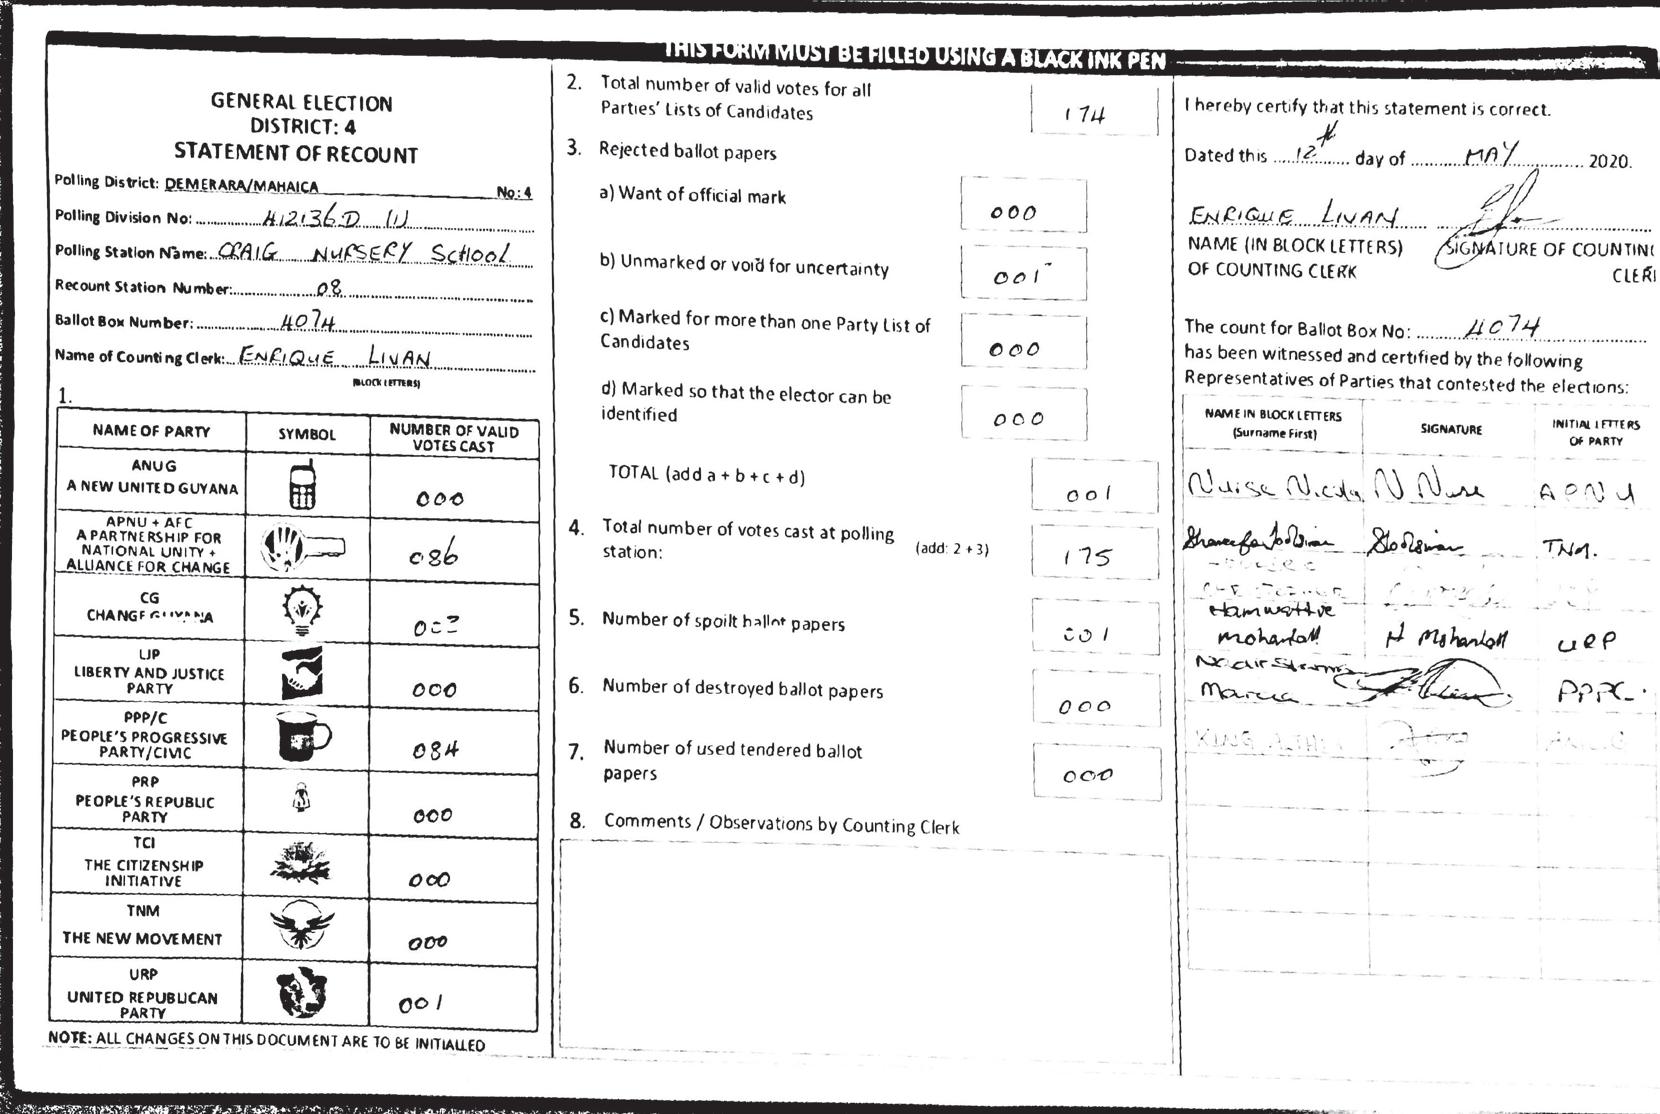 THIS FORM MUST BE FILLED USING A BLACK INK PEN
GENERAL ELECTION
DISTRICT: 4
STATEMENT OF RECOUNT
Polling District: DEMERARA/MAHAICA No: 4
Polling Division No: 412136.D (1)
Polling Station Name: CRAIG NURSERY SCHOOL
Recount Station Number: 08
Ballot Box Number: 4074
Name of Counting Clerk: ENRIQUE LIVAN
(BLOCK LETTERS)
1.
NAME OF PARTY SYMBOL NUMBER OF VALID VOTES CAST
ANUG
A NEW UNITED GUYANA 000
APNU + AFC
A PARTNERSHIP FOR
NATIONAL UNITY +
ALLIANCE FOR CHANGE 086
CG
CHANGE GUYANA
LJP
LIBERTY AND JUSTICE
PARTY 000
PPP/C
PEOPLE'S PROGRESSIVE
PARTY/CIVIC 084
PRP
PEOPLE'S REPUBLIC
PARTY 000
TCI
THE CITIZENSHIP
INITIATIVE 000
TNM
THE NEW MOVEMENT 000
URP
UNITED REPUBLICAN
PARTY 001
NOTE: ALL CHANGES ON THIS DOCUMENT ARE TO BE INITIALLED
2. Total number of valid votes for all
Parties' Lists of Candidates 174
3. Rejected ballot papers
a) Want of official mark 000
b) Unmarked or void for uncertainty 001
c) Marked for more than one Party List of
Candidates 000
d) Marked so that the elector can be
identified 000
TOTAL (add a + b + c + d) 001
4. Total number of votes cast at polling
station: (add: 2 + 3) 175
5. Number of spoilt ballot papers 001
6. Number of destroyed ballot papers 000
7. Number of used tendered ballot
papers 000
8. Comments / Observations by Counting Clerk
I hereby certify that this statement is correct.
Dated this 12th day of MAY 2020.
ENRIQUE LIVAN
NAME (IN BLOCK LETTERS) SIGNATURE OF COUNTING
OF COUNTING CLERK CLERK
The count for Ballot Box No: 4074
has been witnessed and certified by the following
Representatives of Parties that contested the elections:
NAME IN BLOCK LETTERS SIGNATURE INITIAL LETTERS
(Surname First) OF PARTY
Nurse Nicola N Nurse APNU
TNM.
Hamwattie
Mohanlall H Mohanlall URP
Marcia PPPC.
KING